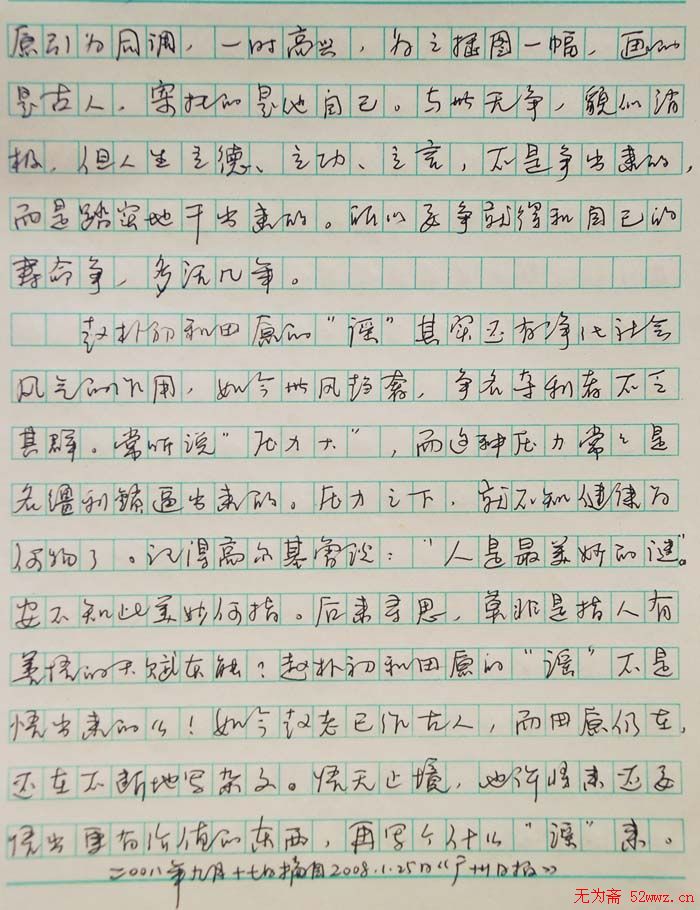 原引为同调，一时高兴，为之插图一幅，画的
是古人，寄托的是他自己。与世无争，貌似消
极，但人生立德、立功、立言，不是争出来的，
而是踏实地干出来的。所以要争就得和自己的
寿命争，多活几年。
赵朴初和田原的“谣”其实还有净化社会
风气的作用，如今世风趋奢，争名夺利者不乏
其群。常听说“压力大”，而这种压力常々是
名缰利锁逼出来的。压力之下，就不知健康为
何物了。记得高尔基曾说：“人是最美妙的谜”。
安不知此美妙何指。后来寻思，莫非是指人有
善悟的天赋本能？赵朴初和田原的“谣”不是
悟出来的么！如今赵老已作古人，而田原仍在，
还在不断地写杂文。悟无止境，也许将来还要
悟出更有价值的东西，再写个什么“谣”来。
二00八年九月十七日摘自2008.1.25日《广州日报》
无为斋 52wwz.cn